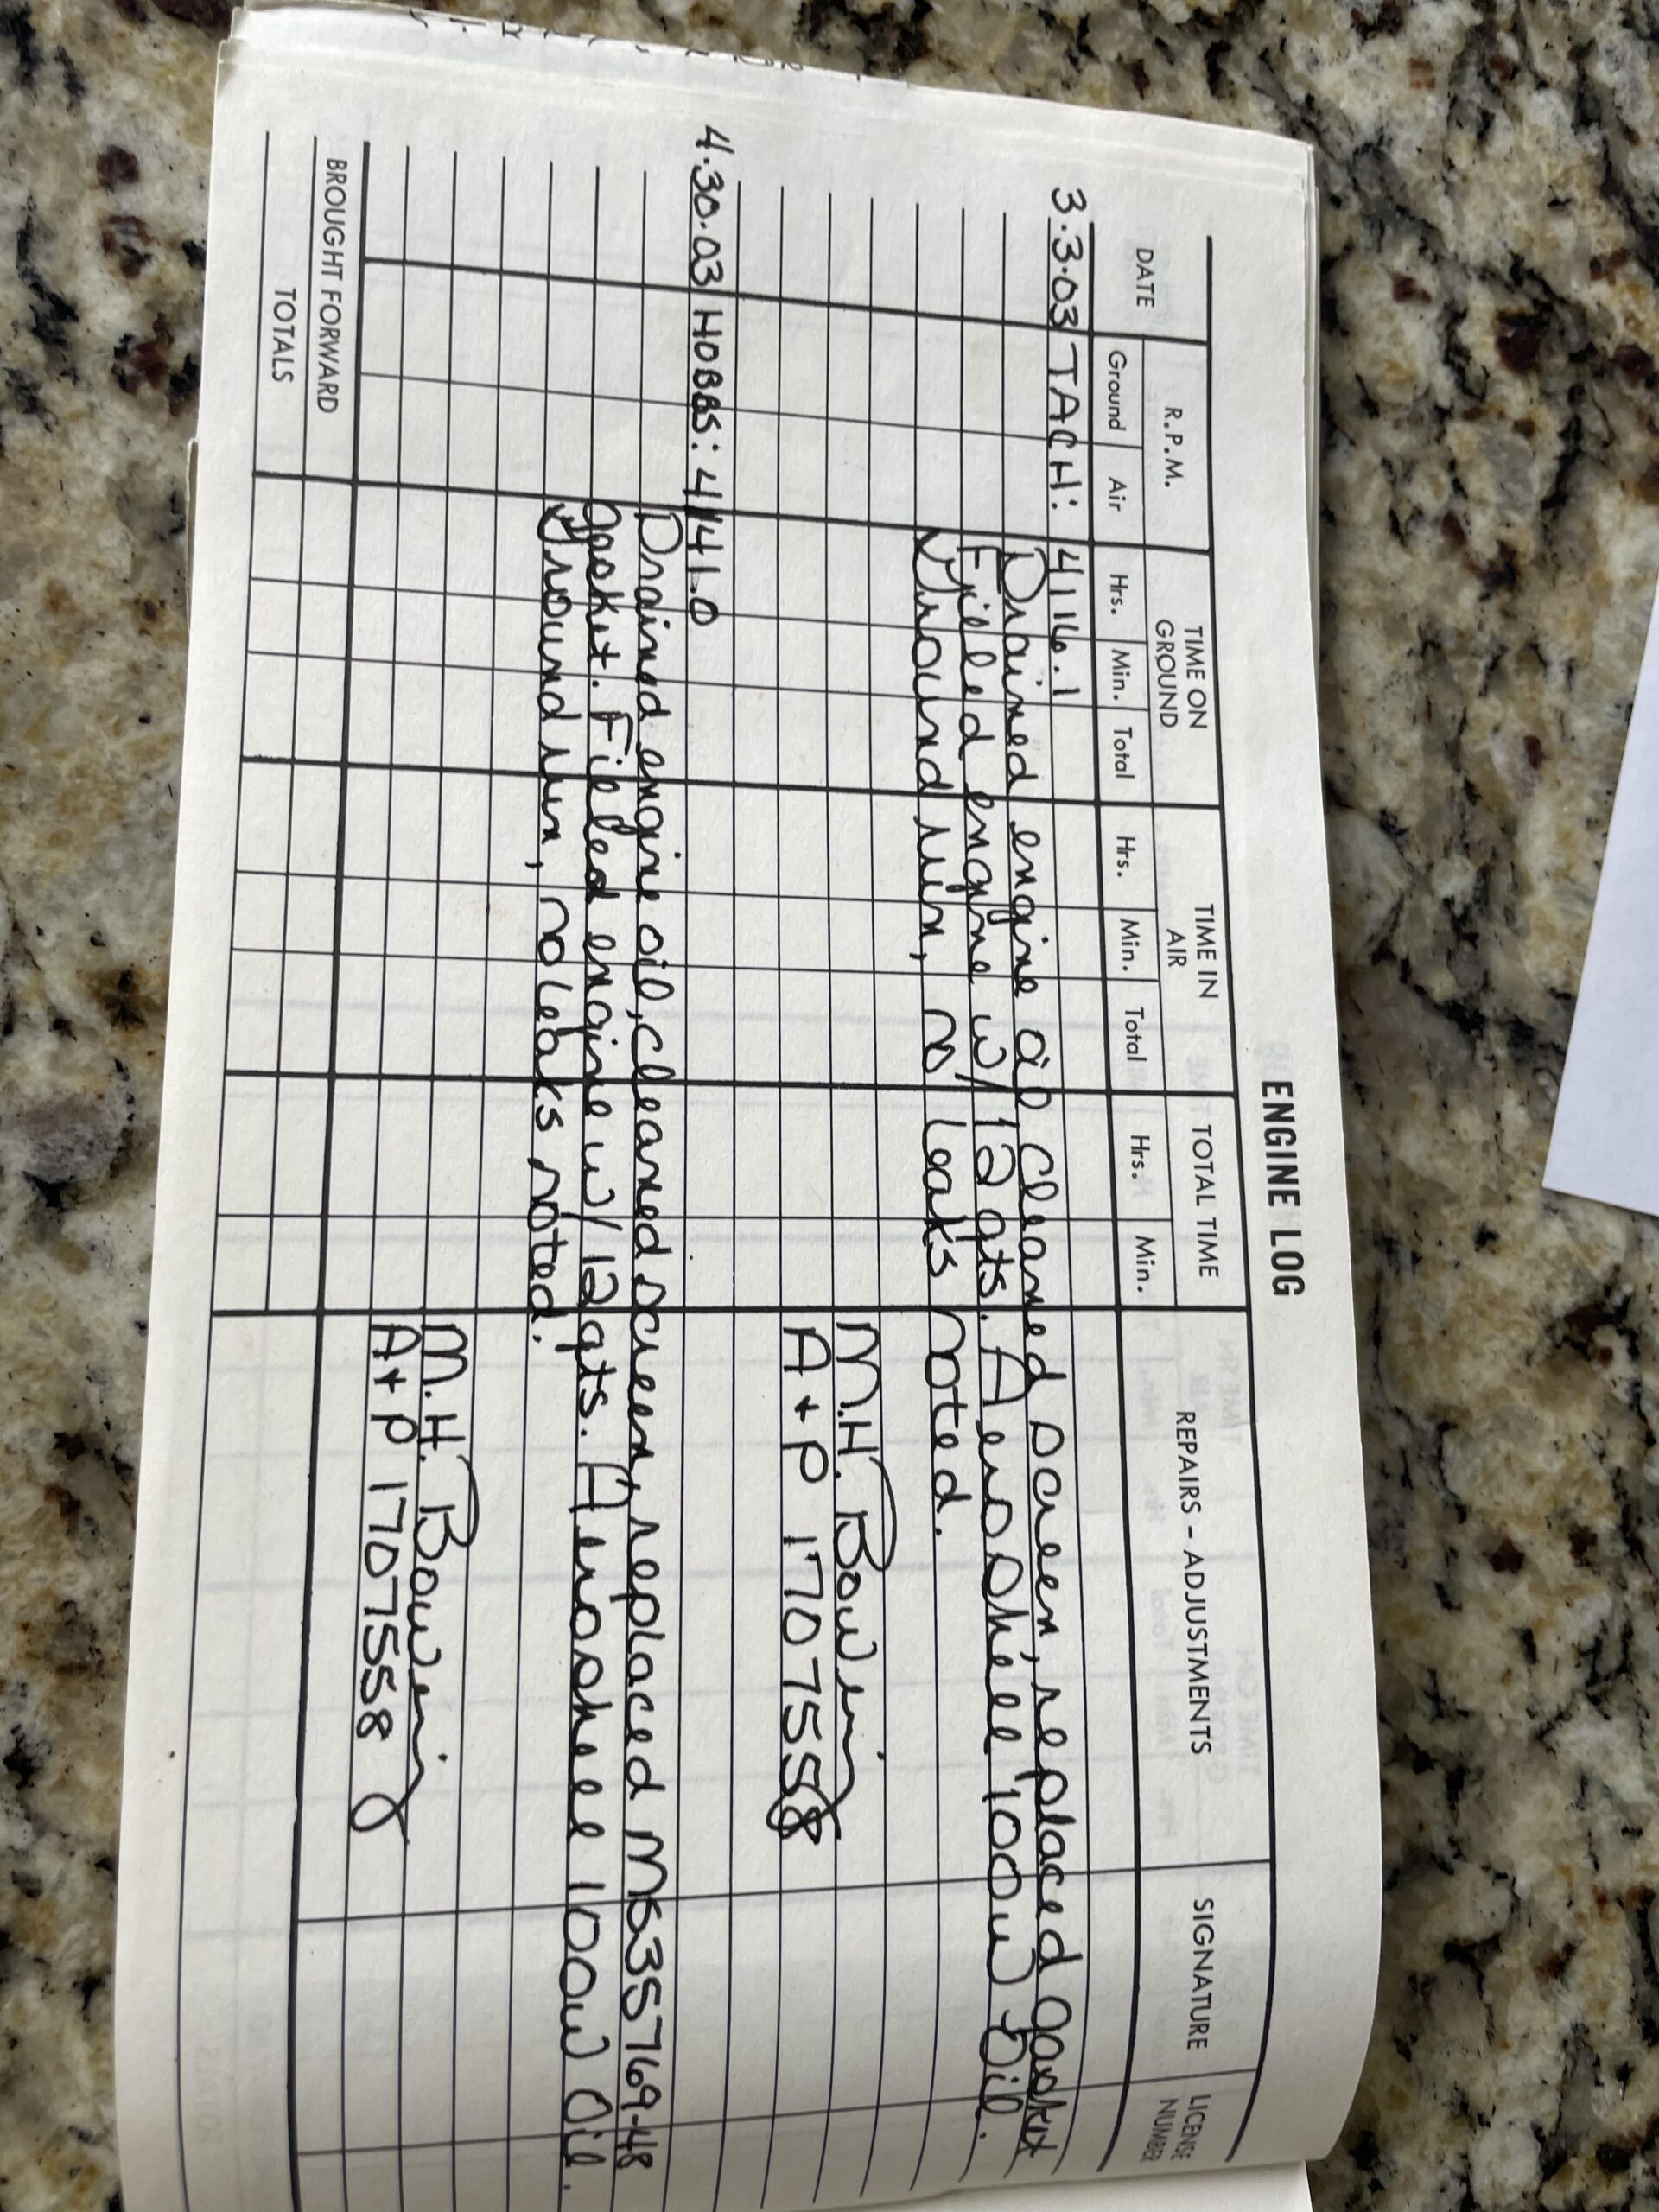 ENGINE LOG
DATE R.P.M. TIME ON GROUND TIME IN AIR TOTAL TIME REPAIRS – ADJUSTMENTS SIGNATURE LICENSE NUMBER
Ground Air Hrs. Min. Total Hrs. Min. Total Hrs. Min.
3.3.03 TACH: 4116.1
Drained engine oil, cleaned screen, replaced gasket
Filled engine w/ 12 qts. Aeroshell 100w Oil.
Ground run, no leaks noted.
M.H. Bowen
A+P 1707558
4.30.03 HOBBS: 4141.0
Drained engine oil, cleaned screen, replaced MS35769-48
gasket. Filled engine w/ 12 qts. Aeroshell 100w Oil.
Ground run, no leaks noted.
M.H. Bowen
A+P 1707558
BROUGHT FORWARD
TOTALS